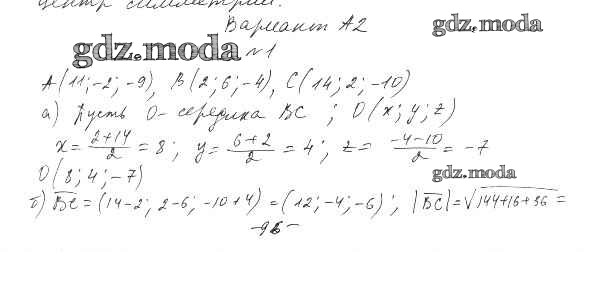 центр симметрии.
Вариант А2
gdz.moda
gdz.moda
№1
A(11; -2; -9), B(2; 6; -4), C(14; 2; -10)
а) Пусть O - середина BC ; O(x; y; z)
x = \frac{2+14}{2} = 8 ; y = \frac{6+2}{2} = 4 ; z = \frac{-4-10}{2} = -7
O(8; 4; -7)
gdz.moda
б) \overline{BC} = (14-2; 2-6; -10+4) = (12; -4; -6) ; |\overline{BC}| = \sqrt{144+16+36} =
-96-